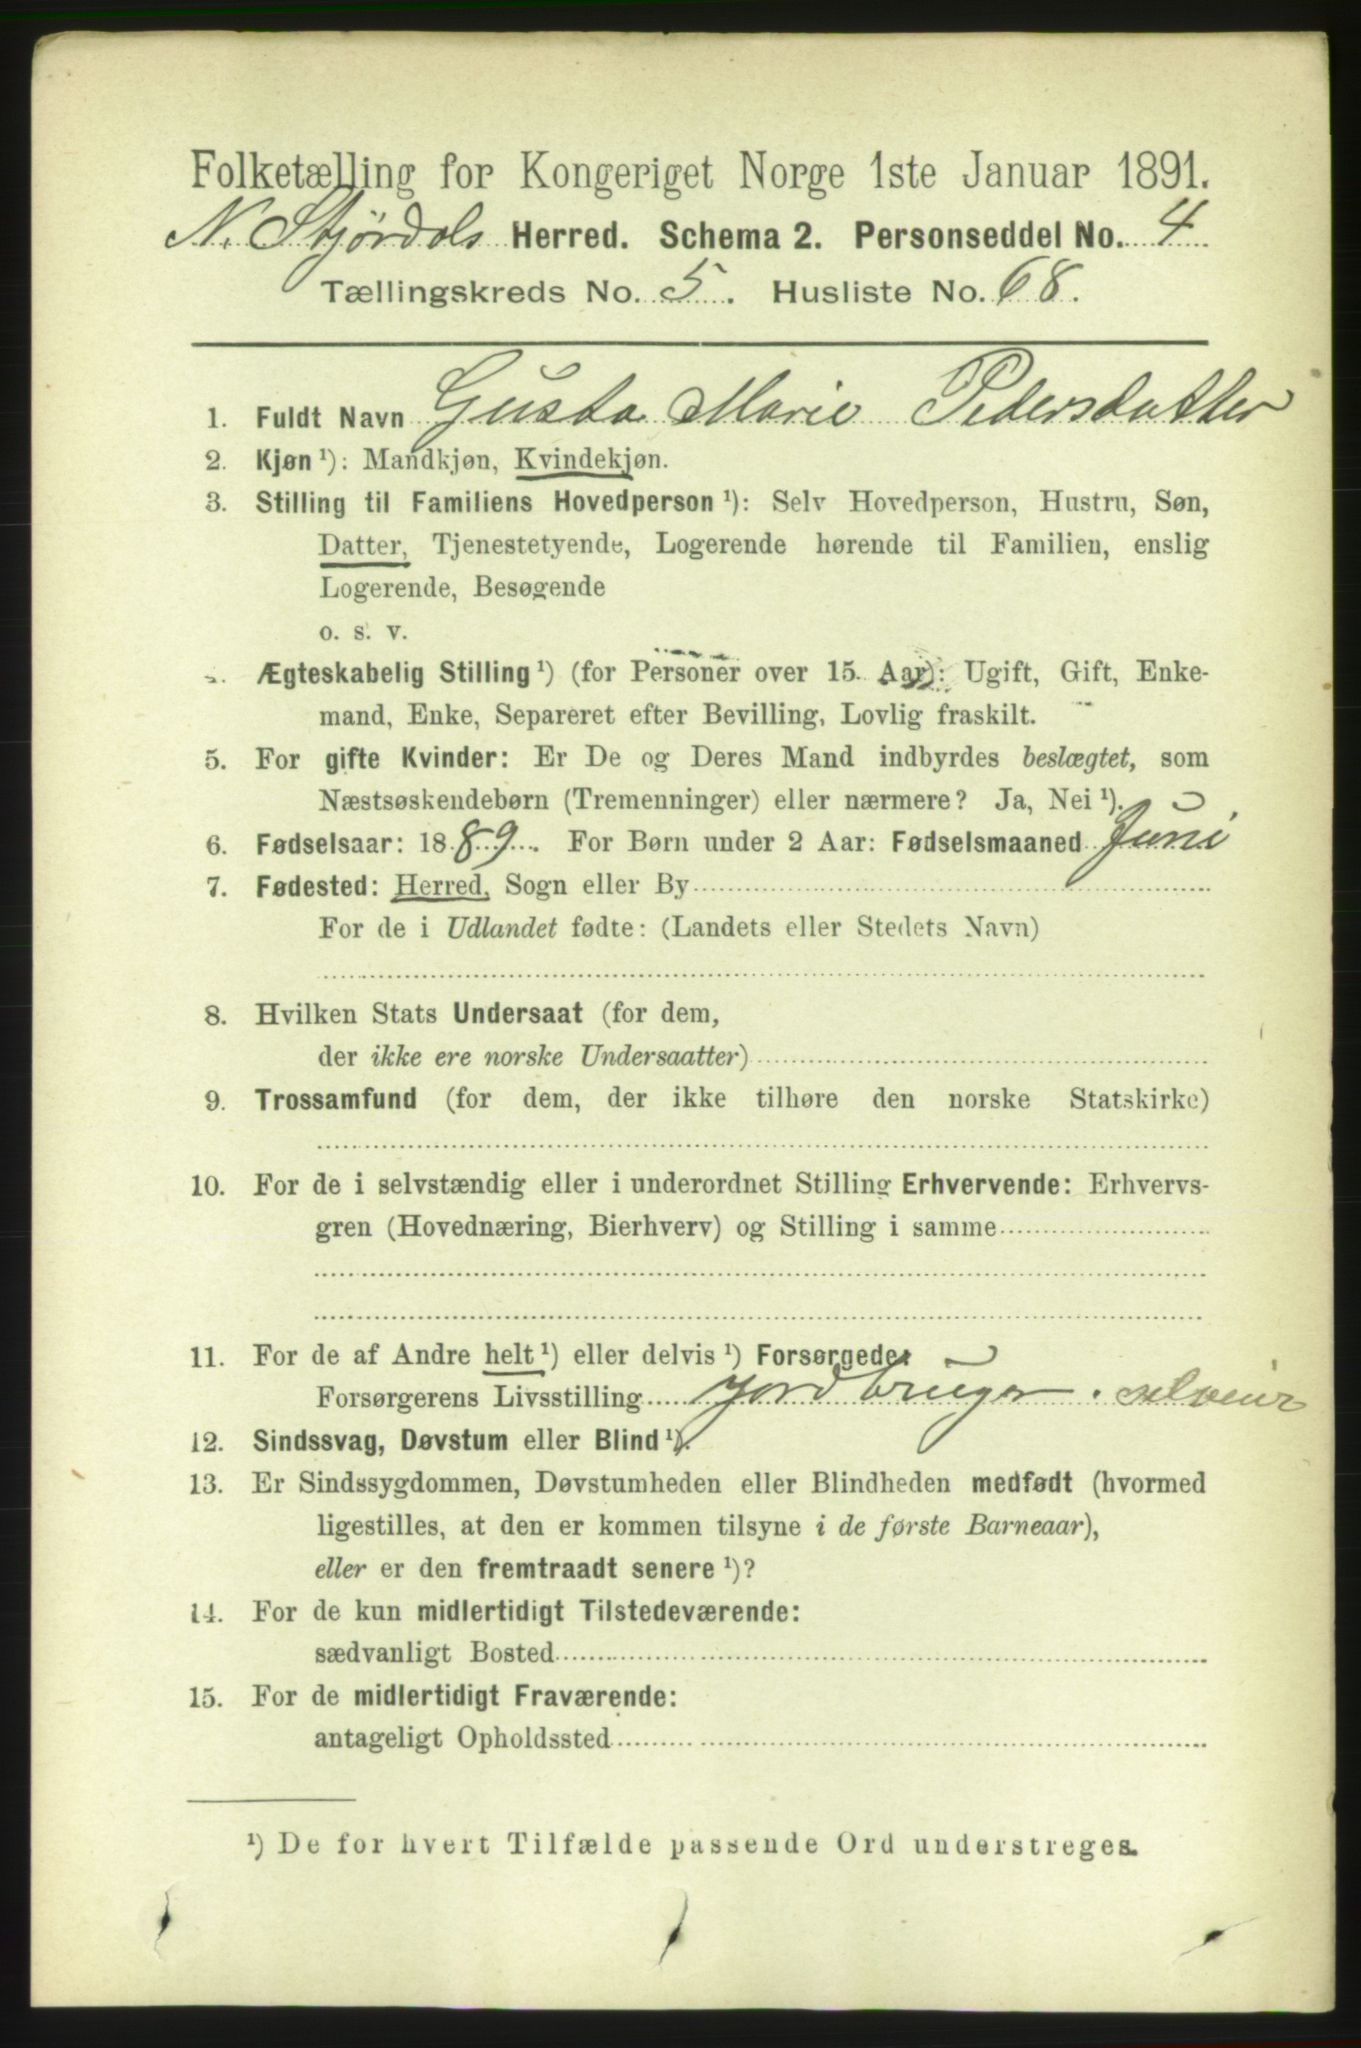 Folketælling for Kongeriget Norge 1ste Januar 1891.
N. Stjørdals Herred. Schema 2. Personseddel No. 4
Tællingskreds No. 5. Husliste No. 68.
1. Fuldt Navn Gusta Marie Pedersdatter
2. Kjøn ¹): Mandkjøn, Kvindekjøn.
3. Stilling til Familiens Hovedperson ¹): Selv Hovedperson, Hustru, Søn,
Datter, Tjenestetyende, Logerende hørende til Familien, enslig
Logerende, Besøgende
o. s. v.
Ægteskabelig Stilling ¹) (for Personer over 15 Aar): Ugift, Gift, Enke-
mand, Enke, Separeret efter Bevilling, Lovlig fraskilt.
5. For gifte Kvinder: Er De og Deres Mand indbyrdes beslægtet, som
Næstsøskendebørn (Tremenninger) eller nærmere? Ja, Nei ¹).
6. Fødselsaar: 1889. For Børn under 2 Aar: Fødselsmaaned Juni
7. Fødested: Herred, Sogn eller By
For de i Udlandet fødte: (Landets eller Stedets Navn)
8. Hvilken Stats Undersaat (for dem,
der ikke ere norske Undersaatter)
9. Trossamfund (for dem, der ikke tilhøre den norske Statskirke)
10. For de i selvstændig eller i underordnet Stilling Erhvervende: Erhvervs-
gren (Hovednæring, Bierhverv) og Stilling i samme
11. For de af Andre helt ¹) eller delvis ¹) Forsørgede:
Forsørgerens Livsstilling Jordbruger. selveier
12. Sindssvag, Døvstum eller Blind ¹).
13. Er Sindssygdommen, Døvstumheden eller Blindheden medfødt (hvormed
ligestilles, at den er kommen tilsyne i de første Barneaar),
eller er den fremtraadt senere ¹)?
14. For de kun midlertidigt Tilstedeværende:
sædvanligt Bosted
15. For de midlertidigt Fraværende:
antageligt Opholdssted
¹) De for hvert Tilfælde passende Ord understreges.